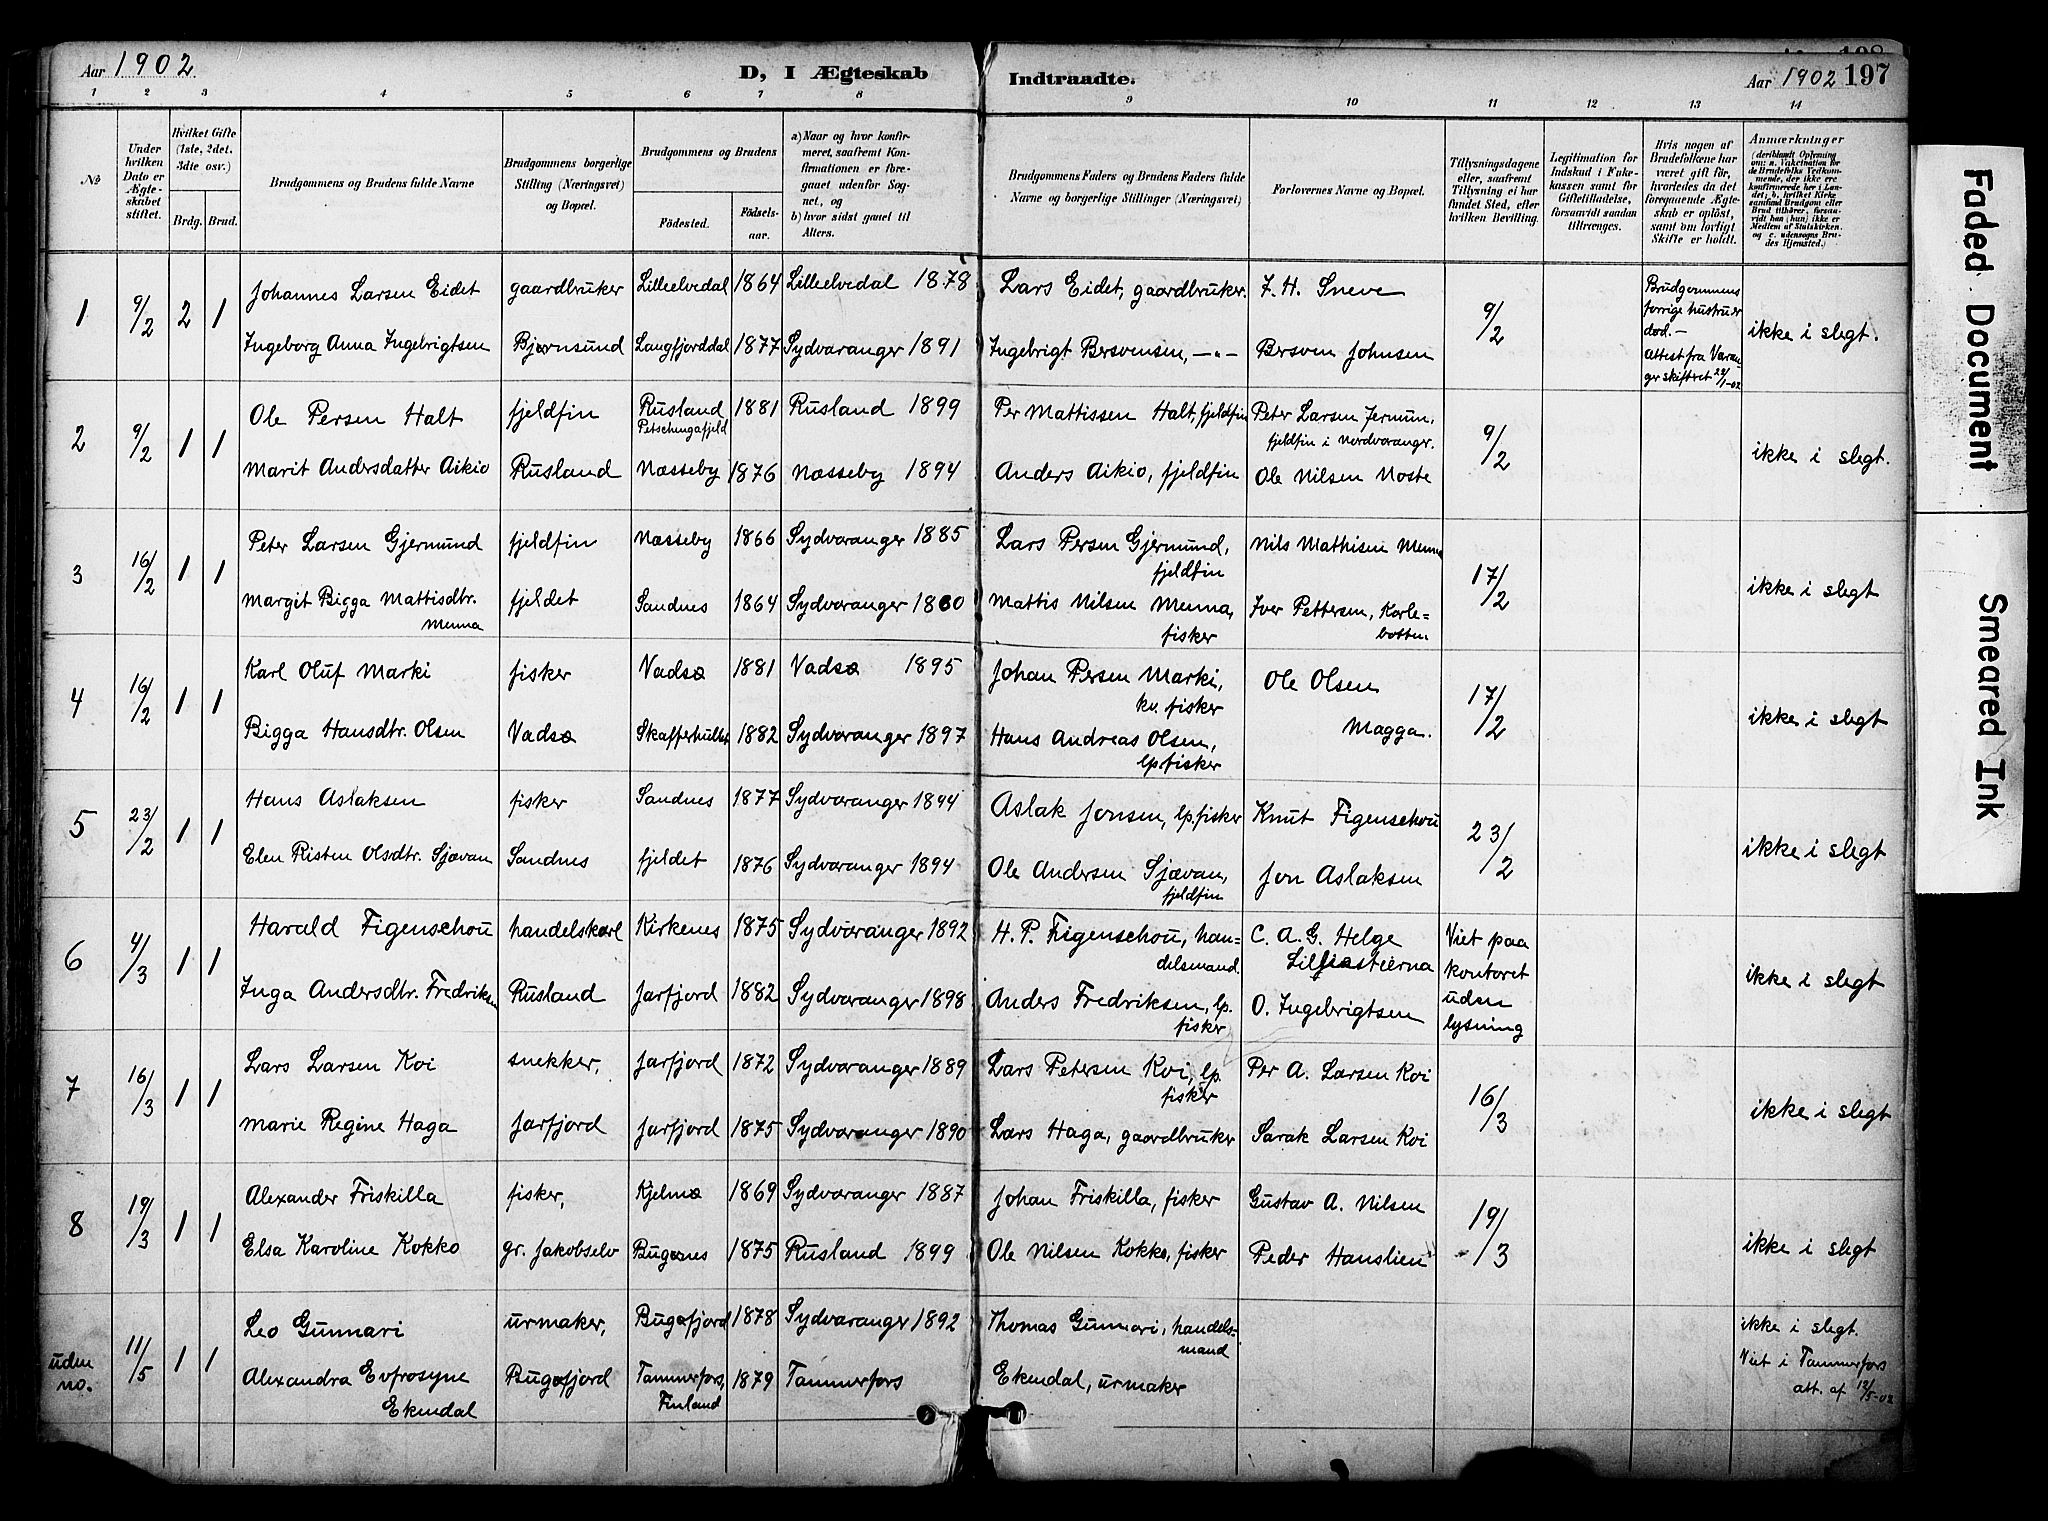 Aar 1902
D, I Ægteskab Indtraadte.
Aar 1902 197
1 2 3 4 5 6 7 8 9 10 11 12 13 14
№
Under hvilken Dato er Ægteskabet stiftet.
Hvilket Gifte (1ste, 2det, 3die osv.)
Brdg. Brud.
Brudgommens og Brudens fulde Navne
Brudgommens borgerlige Stilling (Næringsvei) og Bopæl.
Brudgommens og Brudens
Födested.
Födselsaar.
a) Naar og hvor konfirmeret, saafremt Konfirmationen er foregaaet udenför Sognet, og
b) hvor sidst gaaet til Alters.
Brudgommens Faders og Brudens Faders fulde Navne og borgerlige Stillinger (Næringsvei)
Forlovernes Navne og Bopæl.
Tillysningsdagene eller, saafremt Tillysning ei har fundet Sted, efter hvilken Bevilling.
Legitimation for Indskud i Enkekassen samt for Giftetilladelse, forsaavidt saadan tiltrænges.
Hvis nogen af Brudefolkene har været gift för, hvorledes da det foregaaende Ægteskab er oplöst, samt om lovligt Skifte er holdt.
Anmærkninger
(deriblandt Oplysning om: a. Vakcination for de Brudefolks Vedkommende, der ikke ere konfirmerede her i Landet; b. hvilket Kirkesamfund Brudgom eller Brud tilhører, forsaavidt han (hun) ikke er Medlem af Statskirken, og c. udensogns Brudes Hjemsted.)
1 9/2 2 1 Johannes Larsen Eidet gaardbruker Lilleelvedal 1864 Lilleelvedal 1878 Lars Eidet, gaardbruker. J. H. Sneve 9/2 Brudgommens forrige hustru er död. — Attest fra Varanger skifteret 22/1-02 ikke i slegt.
Ingeborg Anna Ingebrigtsen Bjørnsund Langfjorddal 1877 Sydvaranger 1891 Ingebrigt Bersvensen, —"— Bersven Johnsen
2 9/2 1 1 Ole Persen Halt fjeldfin Rusland Petschengafjeld 1881 Rusland 1899 Per Mattissen Halt, fjeldfin Peter Larsen Jermun, fjeldfin i Nordvarangr. 9/2 ikke i slegt.
Marit Andersdatter Aikio Rusland Næsseby 1876 Næsseby 1894 Anders Aikio, fjeldfin Ole Nilsen Noste
3 16/2 1 1 Peter Larsen Gjermund fjeldfin Næsseby 1866 Sydvaranger 1885 Lars Persen Gjermund, fjeldfin Nils Mathisen Menna 17/2 ikke i slegt
Margit Bigga Mattisdtr. Menna fjeldet Sandnes 1864 Sydvaranger 1880 Mattis Nilsen Menna, fisker Iver Pettersen, Karlebotten
4 16/2 1 1 Karl Oluf Marki fisker Vadsø 1881 Vadsø 1895 Johan Persen Marki, kv. fisker Ole Olsen Magga. 17/2 ikke i slegt
Bigga Hansdtr. Olsen Vadsø Skafferhullet 1882 Sydvaranger 1897 Hans Andreas Olsen, lp fisker
5 23/2 1 1 Hans Aslaksen fisker Sandnes 1877 Sydvaranger 1894 Aslak Jonsen, lp. fisker Knut Figenschou 23/2 ikke i slegt
Elen Risten Olsdtr. Sjævan Sandnes fjeldet 1876 Sydvaranger 1894 Ole Andersen Sjævan, fjeldfin Jon Aslaksen
6 4/3 1 1 Harald Figenschou handelskarl Kirkenes 1875 Sydvaranger 1892 H. P. Figenschou, handelsmand. C. A. G. Helge Lilliestierna Viet paa kontoret uden lysning ikke i slegt
Inga Andersdtr. Fredriksen Rusland Jarfjord 1882 Sydvaranger 1898 Anders Fredriksen, lp. fisker O. Ingebrigtsen
7 16/3 1 1 Lars Larsen Koi snekker, Jarfjord 1872 Sydvaranger 1889 Lars Petersen Koi, lp. fisker Per A. Larsen Koi 16/3 ikke i slegt
Marie Regine Haga Jarfjord Jarfjord 1875 Sydvaranger 1890 Lars Haga, gaardbruker Sarak Larsen Koi
8 19/3 1 1 Alexander Friskilla fisker, Kjelmø 1869 Sydvaranger 1887 Johan Friskilla, fisker Gustav A. Nilsen 19/3 ikke i slegt
Elsa Karoline Kokko gr. Jakobselv Bugønes 1875 Rusland 1899 Ole Nilsen Kokko, fisker Peder Hanslien
uden no. 11/5 1 1 Leo Gunnari urmaker, Bugøfjord 1878 Sydvaranger 1892 Thomas Gunnari, handelsmand ikke i slegt. Viet i Tammerfors att. af 12/5-02
Alexandra Evfrosyne Ekendal Bugøfjord Tammerfors, Finland 1879 Tammerfors Ekendal, urmaker
Faded Document
Smeared Ink